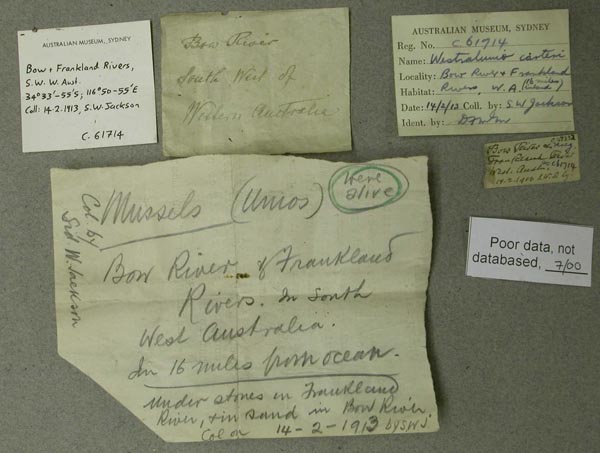 AUSTRALIAN MUSEUM, SYDNEY
Bow + Frankland Rivers,
S.W. W. Aust.
34°33'-55'S; 116°50-55'E
Coll: 14.2.1913, S.W. Jackson
C.61714
Bow River
South West of
Western Australia
AUSTRALIAN MUSEUM, SYDNEY
Reg. No. C 61714
Name: Westralunio carteri
Locality: Bow River & Frankland
Habitat: Rivers, W.A. (16 miles inland)
Date: 14/2/13 Coll. by: S.W. Jackson
Ident. by:
Bow River &
Frankland River
Poor data, not
databased, 7/00
Col by
Sid W. Jackson
Mussels (Unios)
were
alive
Bow River & Frankland
Rivers. In South
West Australia.
In 16 miles from ocean.
Under stones in Frankland
River, + in sand in Bow River.
Col on 14-2-1913 by S.W.J.